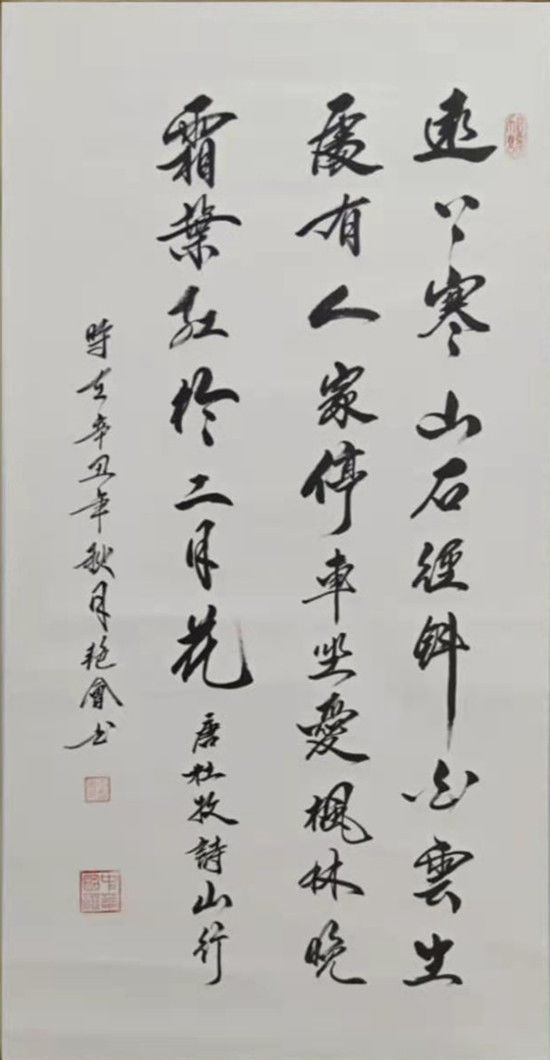 遠上寒山石徑斜白雲生
處有人家停車坐愛楓林晚
霜葉紅於二月花
唐杜牧詩山行
時在辛丑年秋月艳會书